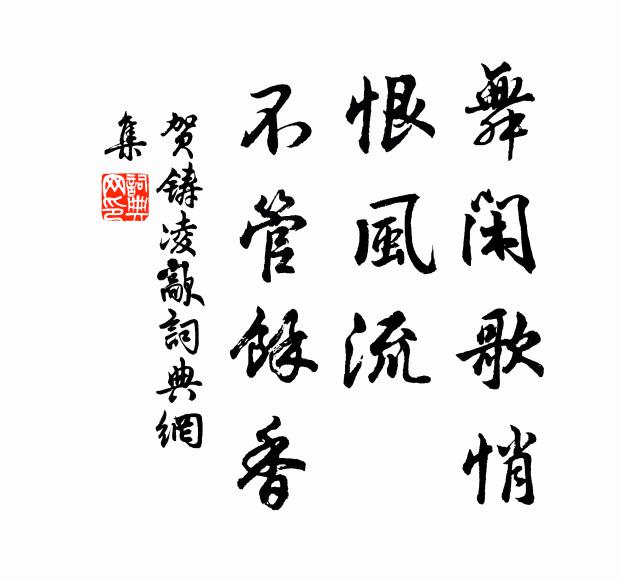 舞閑歌悄
恨風流
不管餘香
賀鑄凌歊詞典網
集
詞典
网印